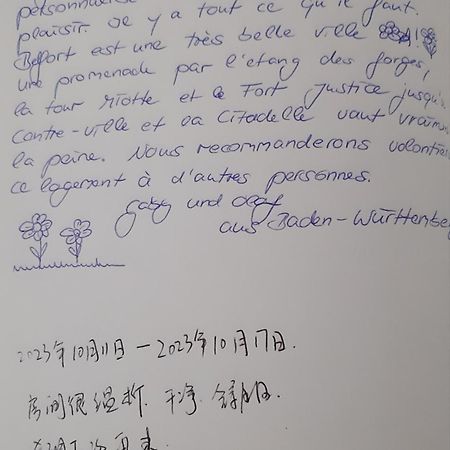 plaisir. Il y a tout ce qu'il faut.
Belfort est une très belle ville !
une promenade par l'étang des forges,
la tour Miotte et le Fort Justice jusqu'à
Centre-ville et la Citadelle vaut vraiment
la peine. Nous recommanderons volontiers
ce logement à d'autres personnes.
Gaby und Olaf
aus Baden-Württember
2023年10月11日 — 2023年10月17日.
房间很温新、干净、舒服.